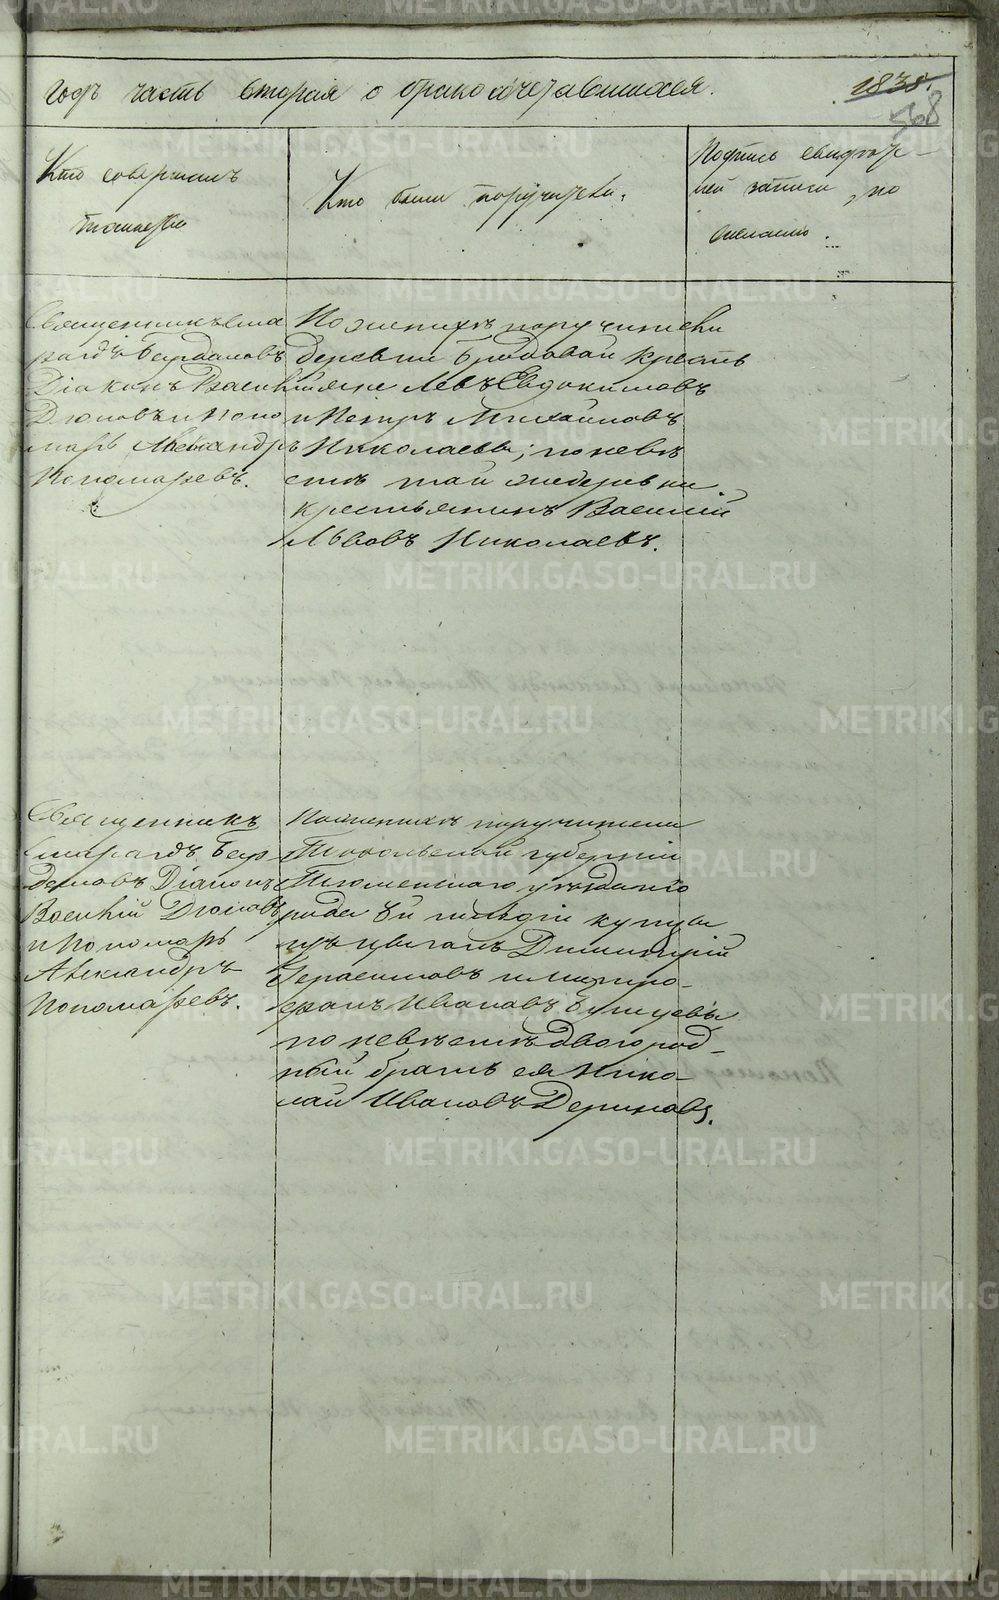 годъ часть вторая о бракосочетавшихся.
1838.
568
Кто совершалъ
таинство
Кто были поручители.
Подпись свидѣте-
лей записи, по
желанію.
Священникъ Сма
рагдъ Бурдаковъ
Діаконъ Василій
и Поно
марь Александръ
Пономаревъ.
По женихѣ поручители
деревни Бродовой крестъ
яне Левъ Евдокимовъ
и Петръ Михайловъ
Николаевы; по невѣ
стѣ той же деревни
крестьянинъ Василій
Львовъ Николаевъ.
Священникъ
Смарагдъ Бур
даковъ Діаконъ
Василій
и Пономарь
Александръ
Пономаревъ.
По женихѣ поручители
Тобольской губерніи
Тюменскаго уѣзднаго
рода 3й гильдіи купцы
изъ цыганъ Димитрій
Герасимовъ и Митро-
фанъ Ивановъ
по невѣстѣ двоюрод-
ный братъ ея Нико-
лай Ивановъ
METRIKI.GASO-URAL.RU